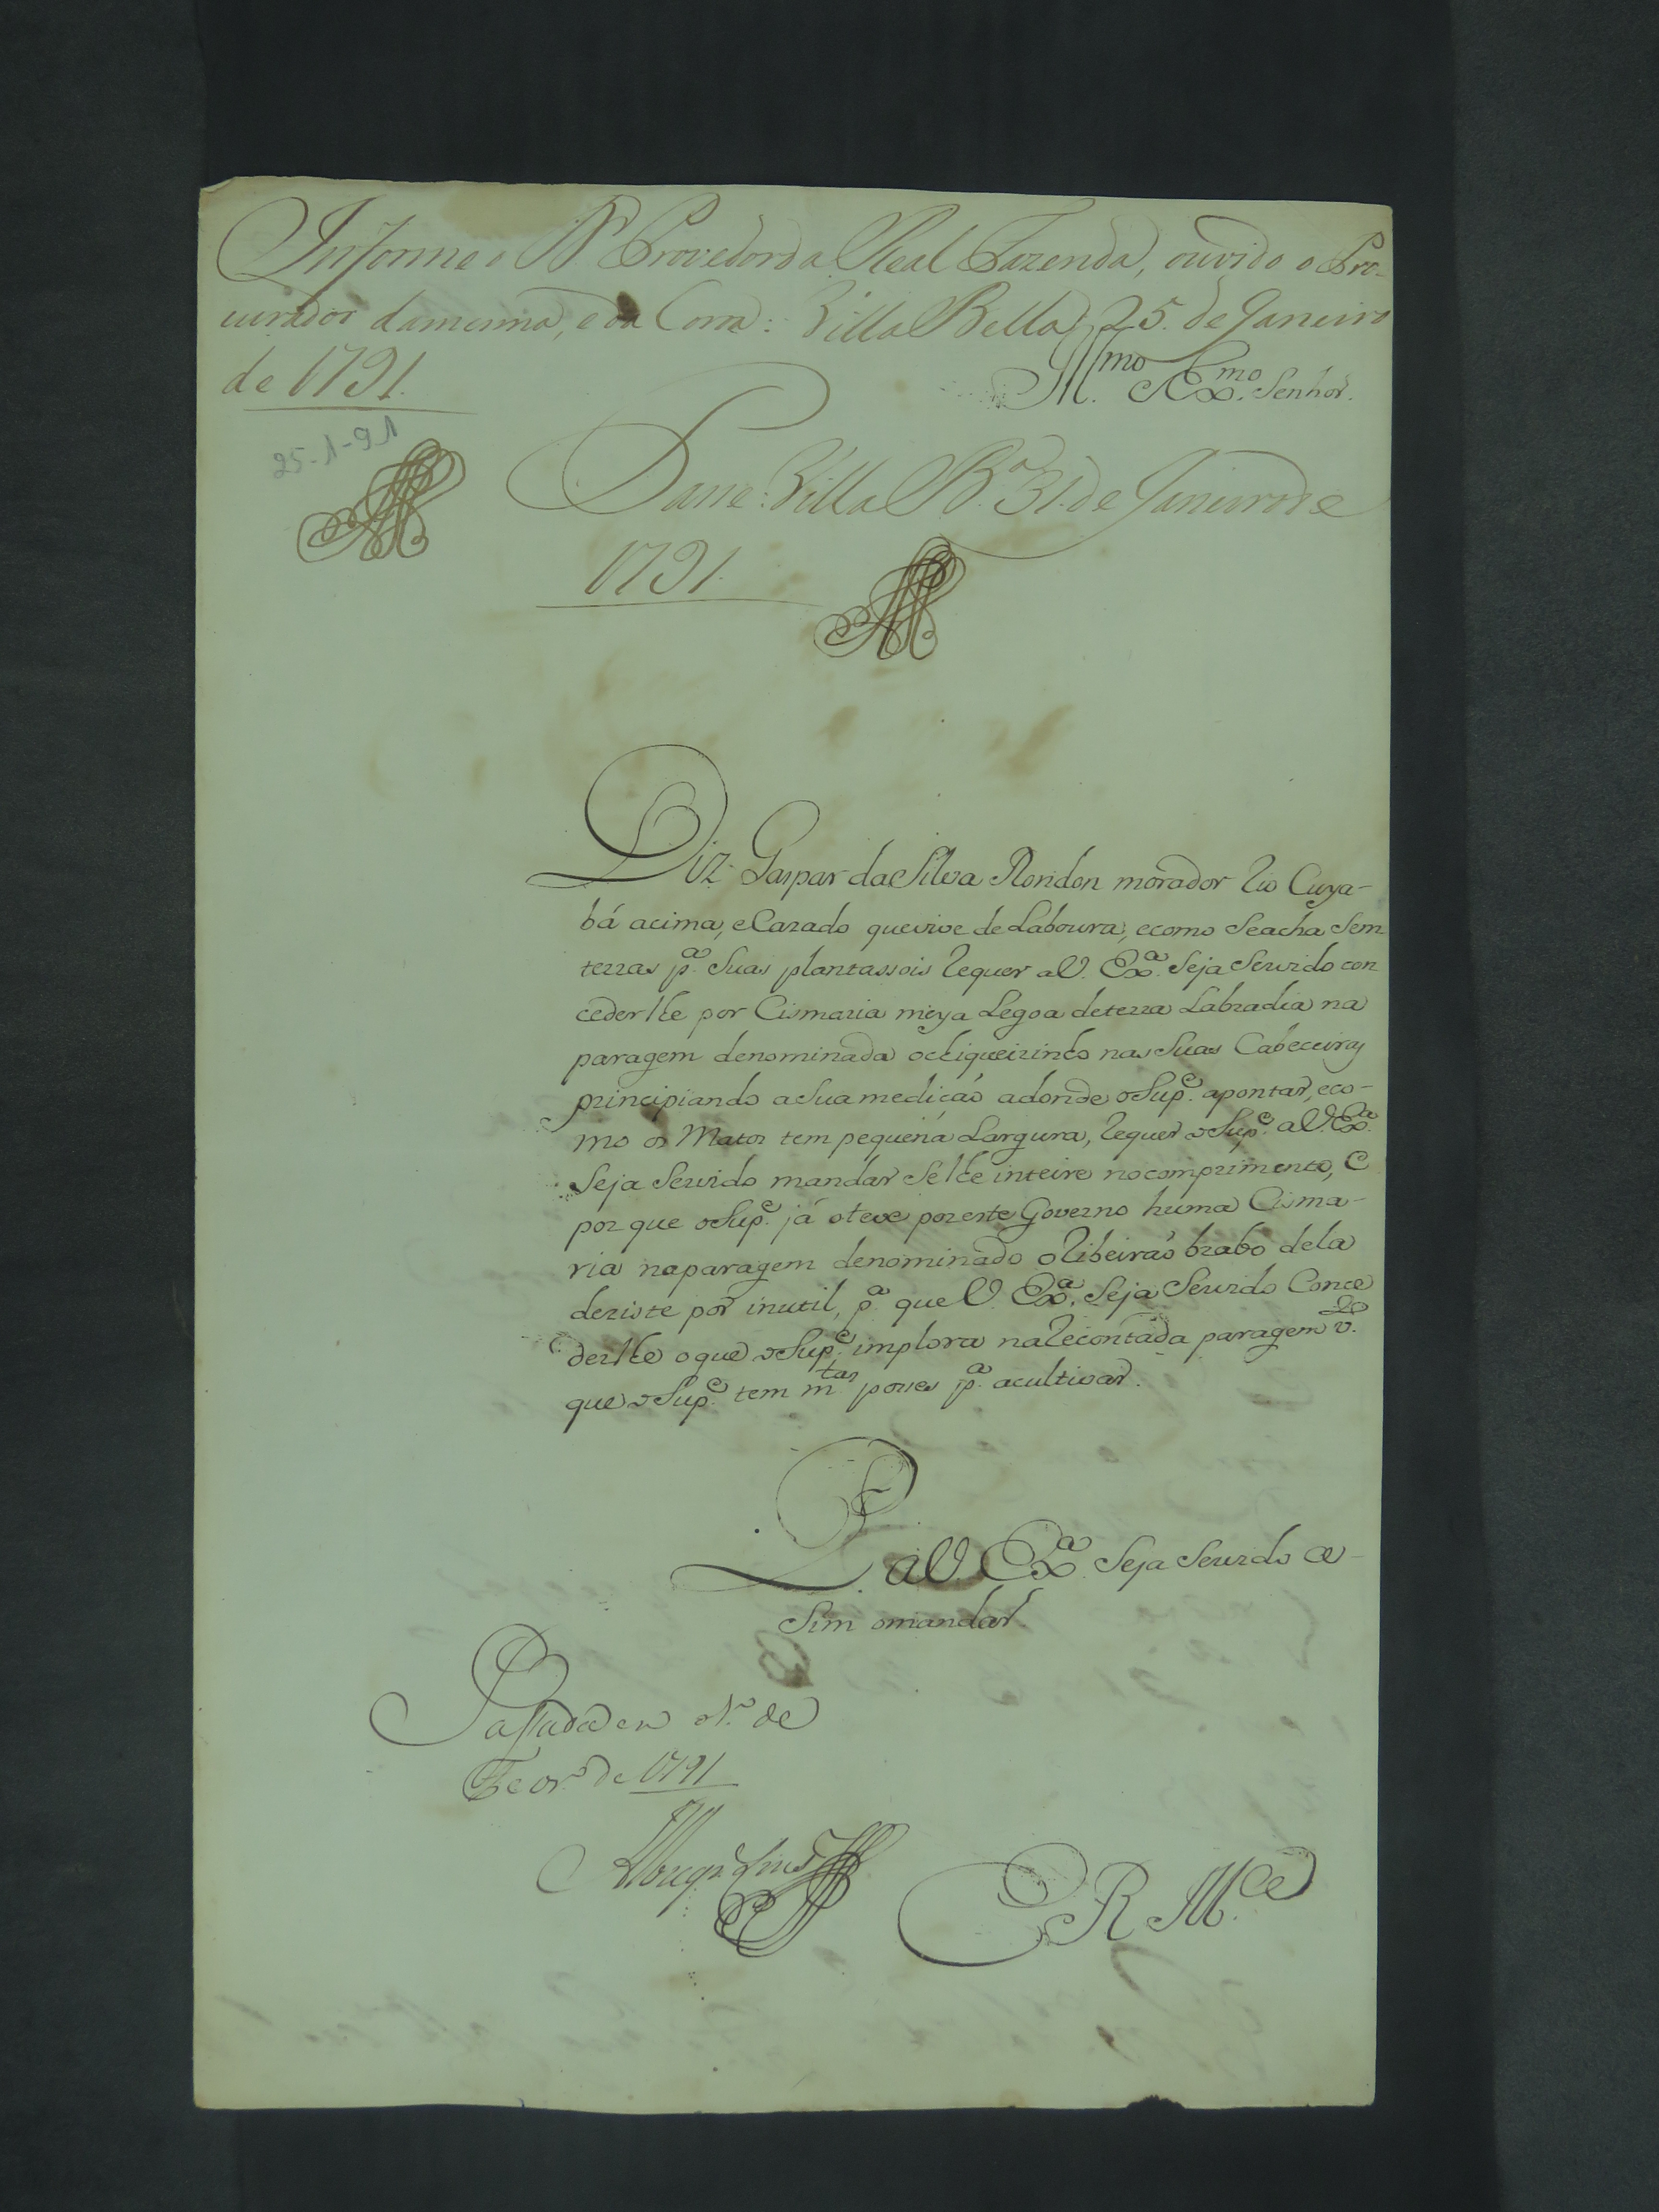 Informe o D.r Provedor da Real Fazenda, ouvido o Pro-
curador da mesma, e da Coroa: Villa Bella 25. de Janeiro
de 1791.
Ill.mo e Ex.mo Senhor.
25-1-91
Passe: Villa B.a 31. de Janeiro de
1791.
Diz Gaspar da Silva Rondon morador Rio Cuya-
bá acima, e Cazado que vive de Laboura, e como Se acha Sem
terras p.a Suas plantassois Requer a V. Ex.a Seja Servido con
ceder lhe por Cismaria meya Legoa de terra Labradia na
paragem denominada o chiqueirinho nas Suas Cabeceiras
principiando a Sua medicaõ adonde o Sup.e apontar, eco-
mo os Matos tem pequena Largura, Requer o Sup.e a V. Ex.a
Seja Servido mandar Se lhe inteire no comprimento, e
por que o Sup.e já oteve por este Governo huma Cisma-
ria na paragem denominado o Ribeiraõ brabo dela
deziste por inutil, p.a que V. Ex.a Seja Servido Conce
der lhe o que o Sup.e implora na Recontada paragem v.do
que o Sup.e tem m.tas posses p.a acultivar.
P. a V. Ex.a Seja Servido a-
Sim o mandar.
Passada em de
Fevr.o de 1791
E R M.ce